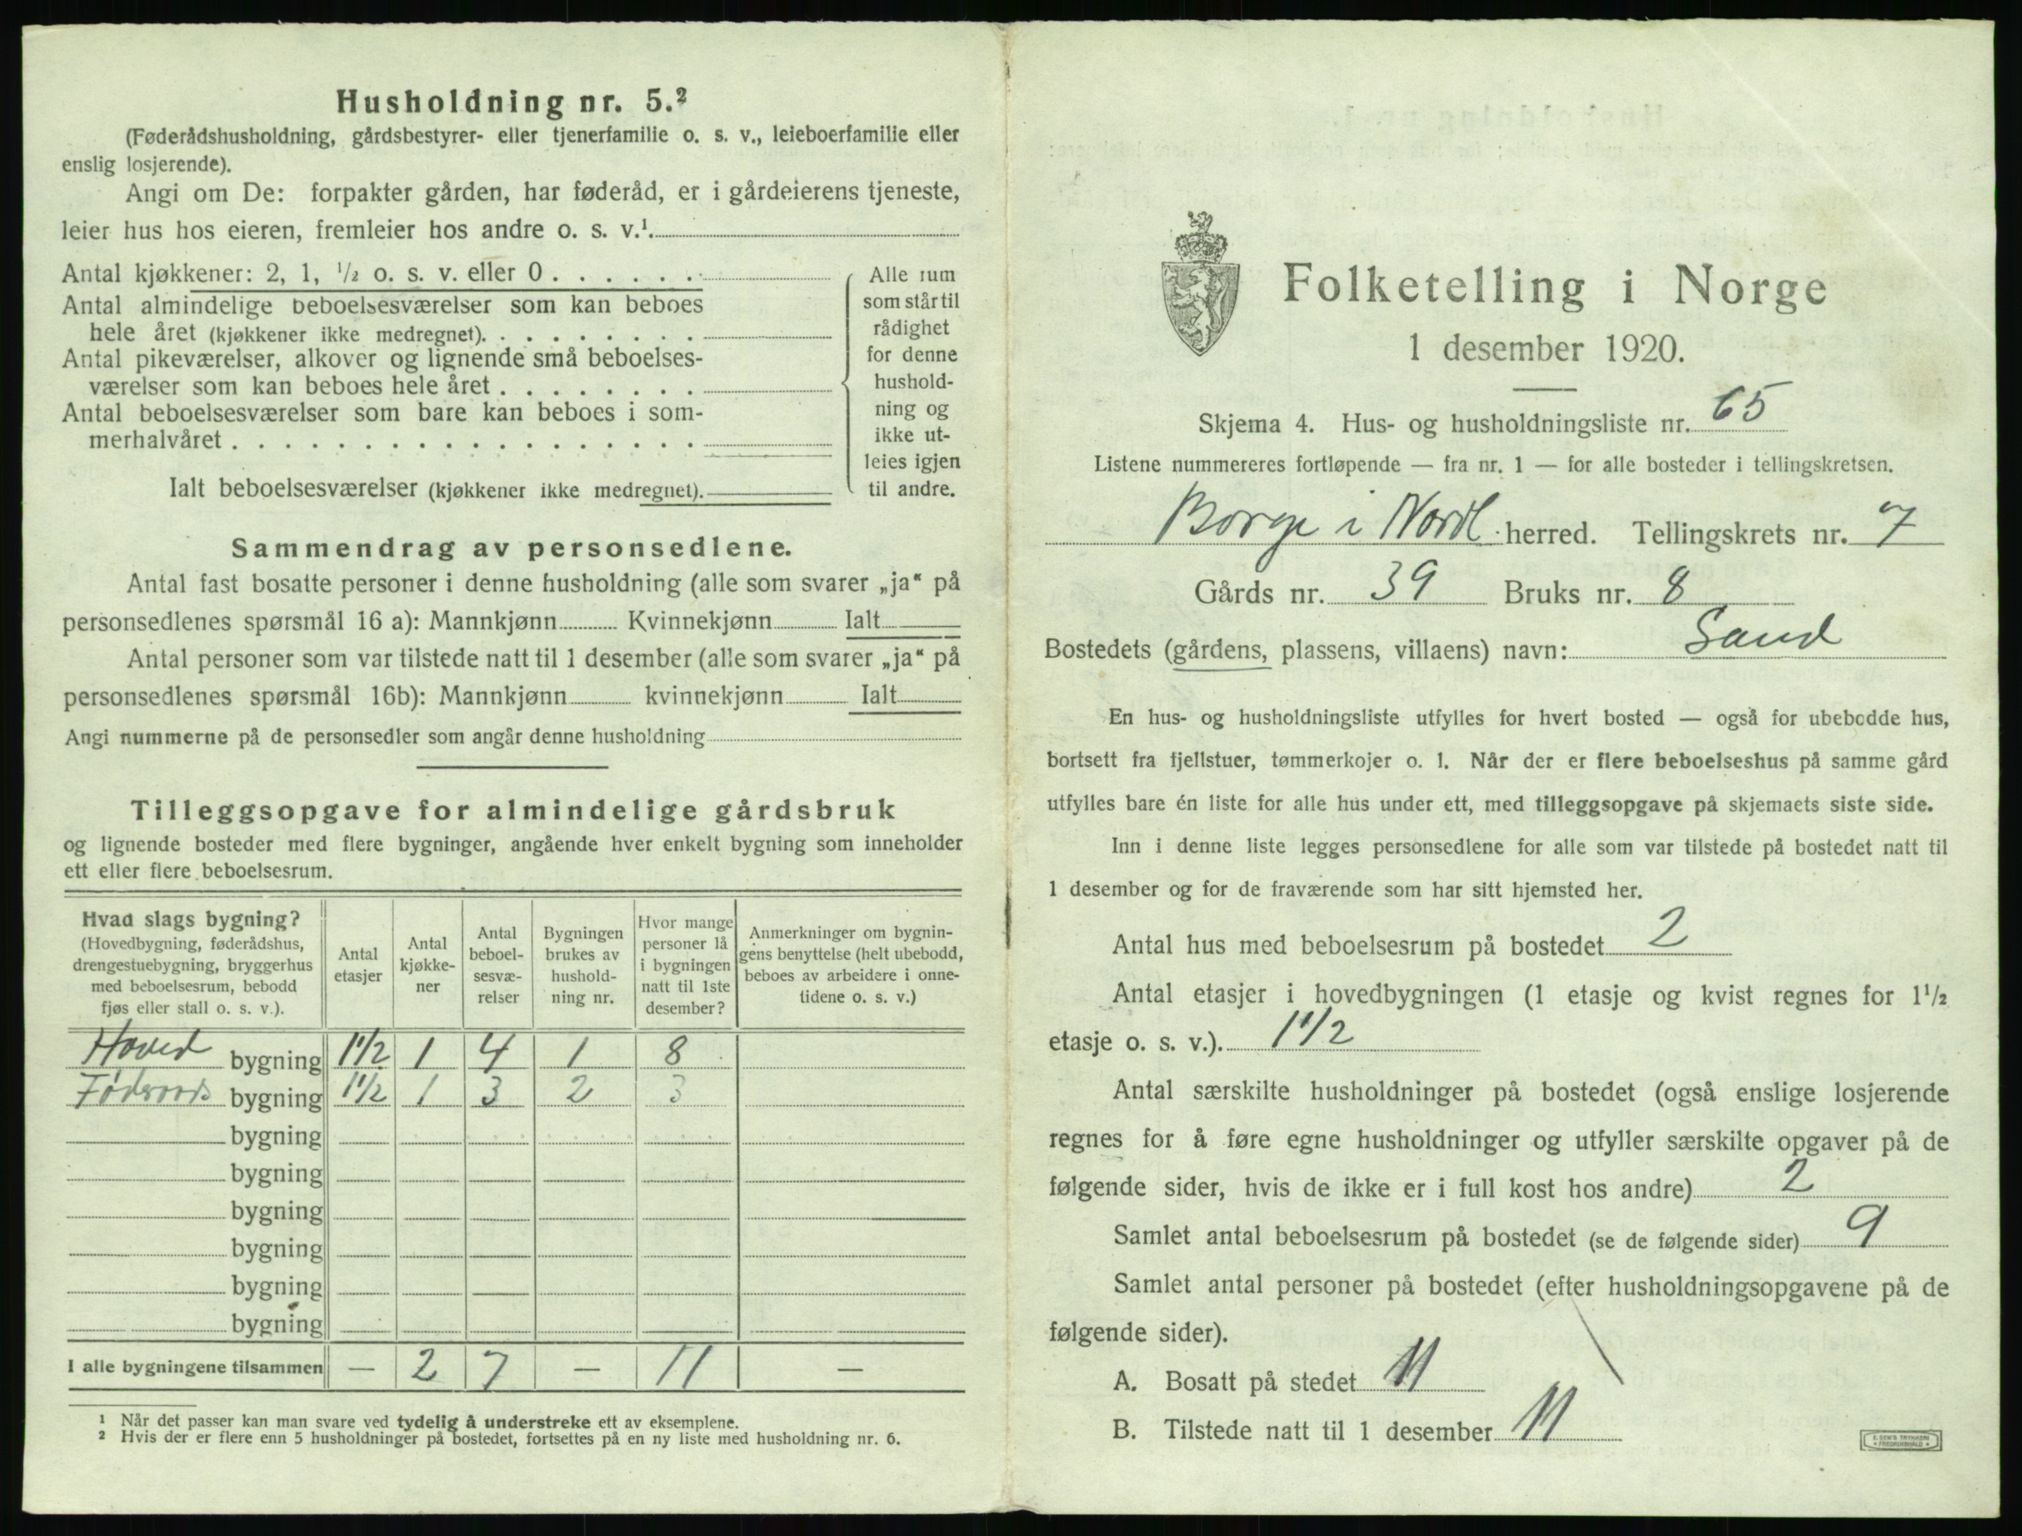 Husholdning nr. 5.²
(Føderådshusholdning, gårdsbestyrer- eller tjenerfamilie o. s. v., leieboerfamilie eller
enslig losjerende).
Angi om De: forpakter gården, har føderåd, er i gårdeierens tjeneste,
leier hus hos eieren, fremleier hos andre o. s. v.¹
Antal kjøkkener: 2, 1, ½ o. s. v. eller 0 . . . . . .
Antal almindelige beboelsesværelser som kan beboes
hele året (kjøkkener ikke medregnet). . . . . . . . .
Antal pikeværelser, alkover og lignende små beboelses-
værelser som kan beboes hele året . . . . . . . .
Antal beboelsesværelser som bare kan beboes i som-
merhalvåret . . . . . . . . . . . . . . . . . .
Ialt beboelsesværelser (kjøkkener ikke medregnet).
Alle rum
som står til
rådighet
for denne
hushold-
ning og
ikke ut-
leies igjen
til andre.
Sammendrag av personsedlene.
Antal fast bosatte personer i denne husholdning (alle som svarer „ja“ på
personsedlenes spørsmål 16 a): Mannkjønn Kvinnekjønn Ialt
Antal personer som var tilstede natt til 1 desember (alle som svarer „ja“ på
personsedlenes spørsmål 16b): Mannkjønn kvinnekjønn Ialt
Angi nummerne på de personsedler som angår denne husholdning
Tilleggsopgave for almindelige gårdsbruk
og lignende bosteder med flere bygninger, angående hver enkelt bygning som inneholder
ett eller flere beboelsesrum.
Hvad slags bygning?
(Hovedbygning, føderådshus,
drengestuebygning, bryggerhus
med beboelsesrum, bebodd
fjøs eller stall o. s. v.).
Antal
etasjer
Antal
kjøkke-
ner
Antal
beboel-
sesvæ-
relser
Bygningen
brukes av
hushold-
ning nr.
Hvor mange
personer lå
i bygningen
natt til 1ste
desember?
Anmerkninger om bygnin-
gens benyttelse (helt ubebodd,
beboes av arbeidere i onne-
tidene o. s. v.)
Hoved bygning 1½ 1 4 1 8
Føderaads bygning 1½ 1 3 2 3
bygning
bygning
bygning
bygning
bygning
bygning
I alle bygningene tilsammen — 2 7 — 11 —
¹ Når det passer kan man svare ved tydelig å understreke ett av eksemplene.
² Hvis der er flere enn 5 husholdninger på bostedet, fortsettes på en ny liste med husholdning nr. 6.
Folketelling i Norge
1 desember 1920.
Skjema 4. Hus- og husholdningsliste nr. 65
Listene nummereres fortløpende — fra nr. 1 — for alle bosteder i tellingskretsen.
Borge i Nordl. herred. Tellingskrets nr. 7
Gårds nr. 39 Bruks nr. 8
Bostedets (gårdens, plassens, villaens) navn: Sand
En hus- og husholdningsliste utfylles for hvert bosted — også for ubebodde hus,
bortsett fra fjellstuer, tømmerkojer o. l. Når der er flere beboelseshus på samme gård
utfylles bare én liste for alle hus under ett, med tilleggsopgave på skjemaets siste side.
Inn i denne liste legges personsedlene for alle som var tilstede på bostedet natt til
1 desember og for de fraværende som har sitt hjemsted her.
Antal hus med beboelsesrum på bostedet 2
Antal etasjer i hovedbygningen (1 etasje og kvist regnes for 1½
etasje o. s. v.). 1½
Antal særskilte husholdninger på bostedet (også enslige losjerende
regnes for å føre egne husholdninger og utfyller særskilte opgaver på de
følgende sider, hvis de ikke er i full kost hos andre) 2
Samlet antal beboelsesrum på bostedet (se de følgende sider) 9
Samlet antal personer på bostedet (efter husholdningsopgavene på de
følgende sider).
A. Bosatt på stedet 11
B. Tilstede natt til 1 desember 11